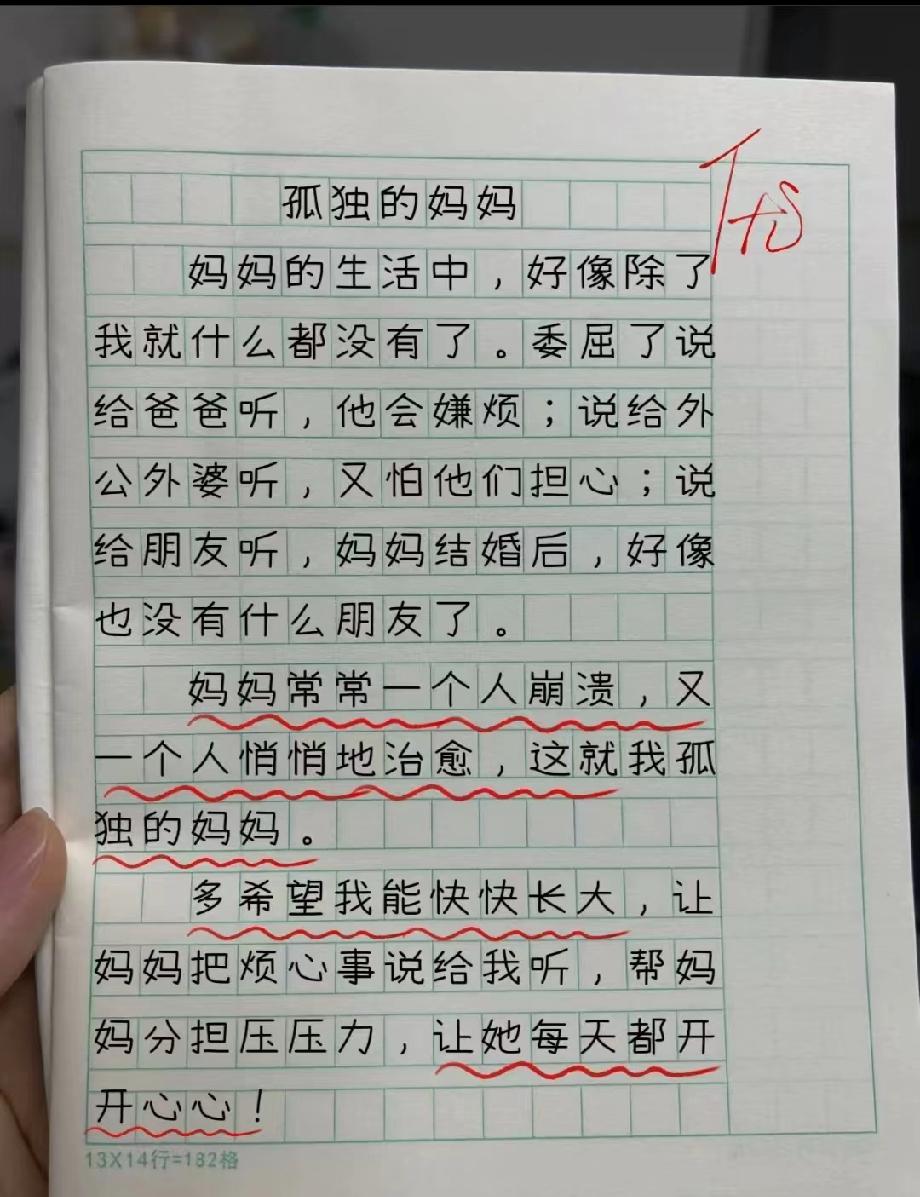 孤独的妈妈
妈妈的生活中，好像除了
我就什么都没有了。委屈了说
给爸爸听，他会嫌烦；说给外
公外婆听，又怕他们担心；说
给朋友听，妈妈结婚后，好像
也没有什么朋友了。
妈妈常常一个人崩溃，又
一个人悄悄地治愈，这就我孤
独的妈妈。
多希望我能快快长大，让
妈妈把烦心事说给我听，帮妈
妈分担压压力，让她每天都开
开心心！
13X14行=182格